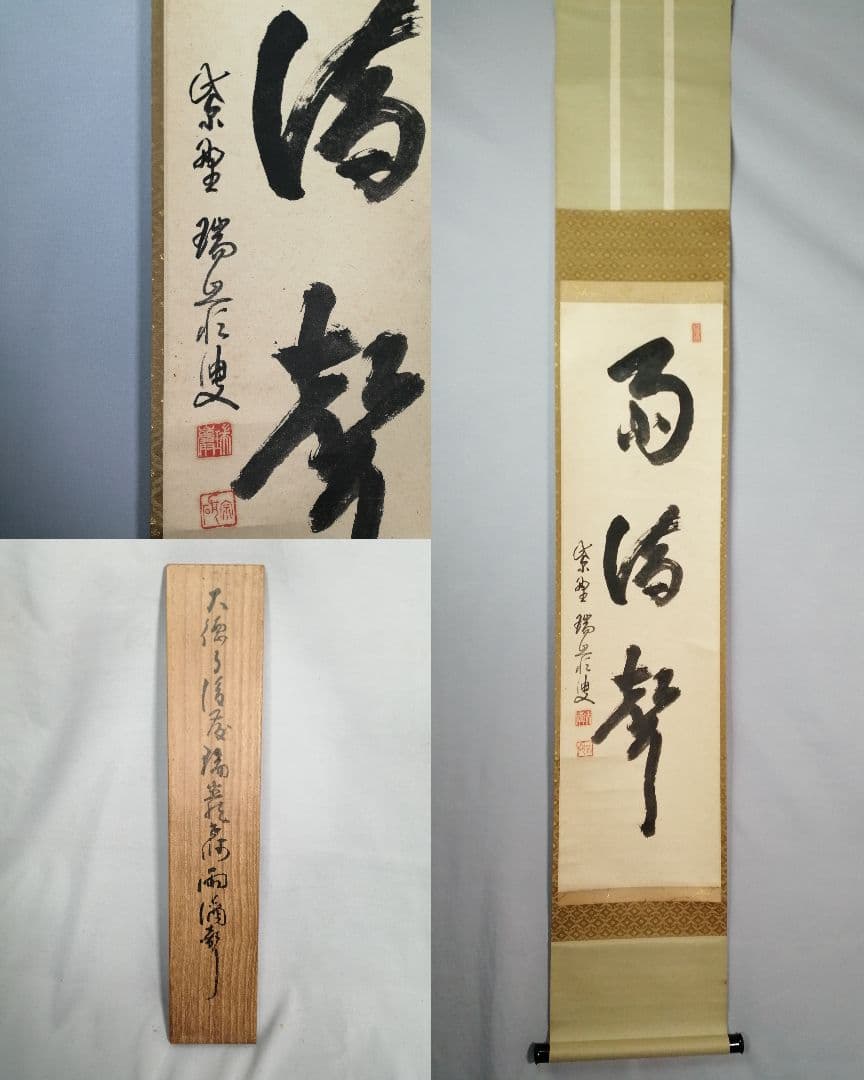 滴聲
紫野 瑞巖叟
大徳寺後藤瑞巖老師雨滴聲
雨滴聲
紫野 瑞巖叟